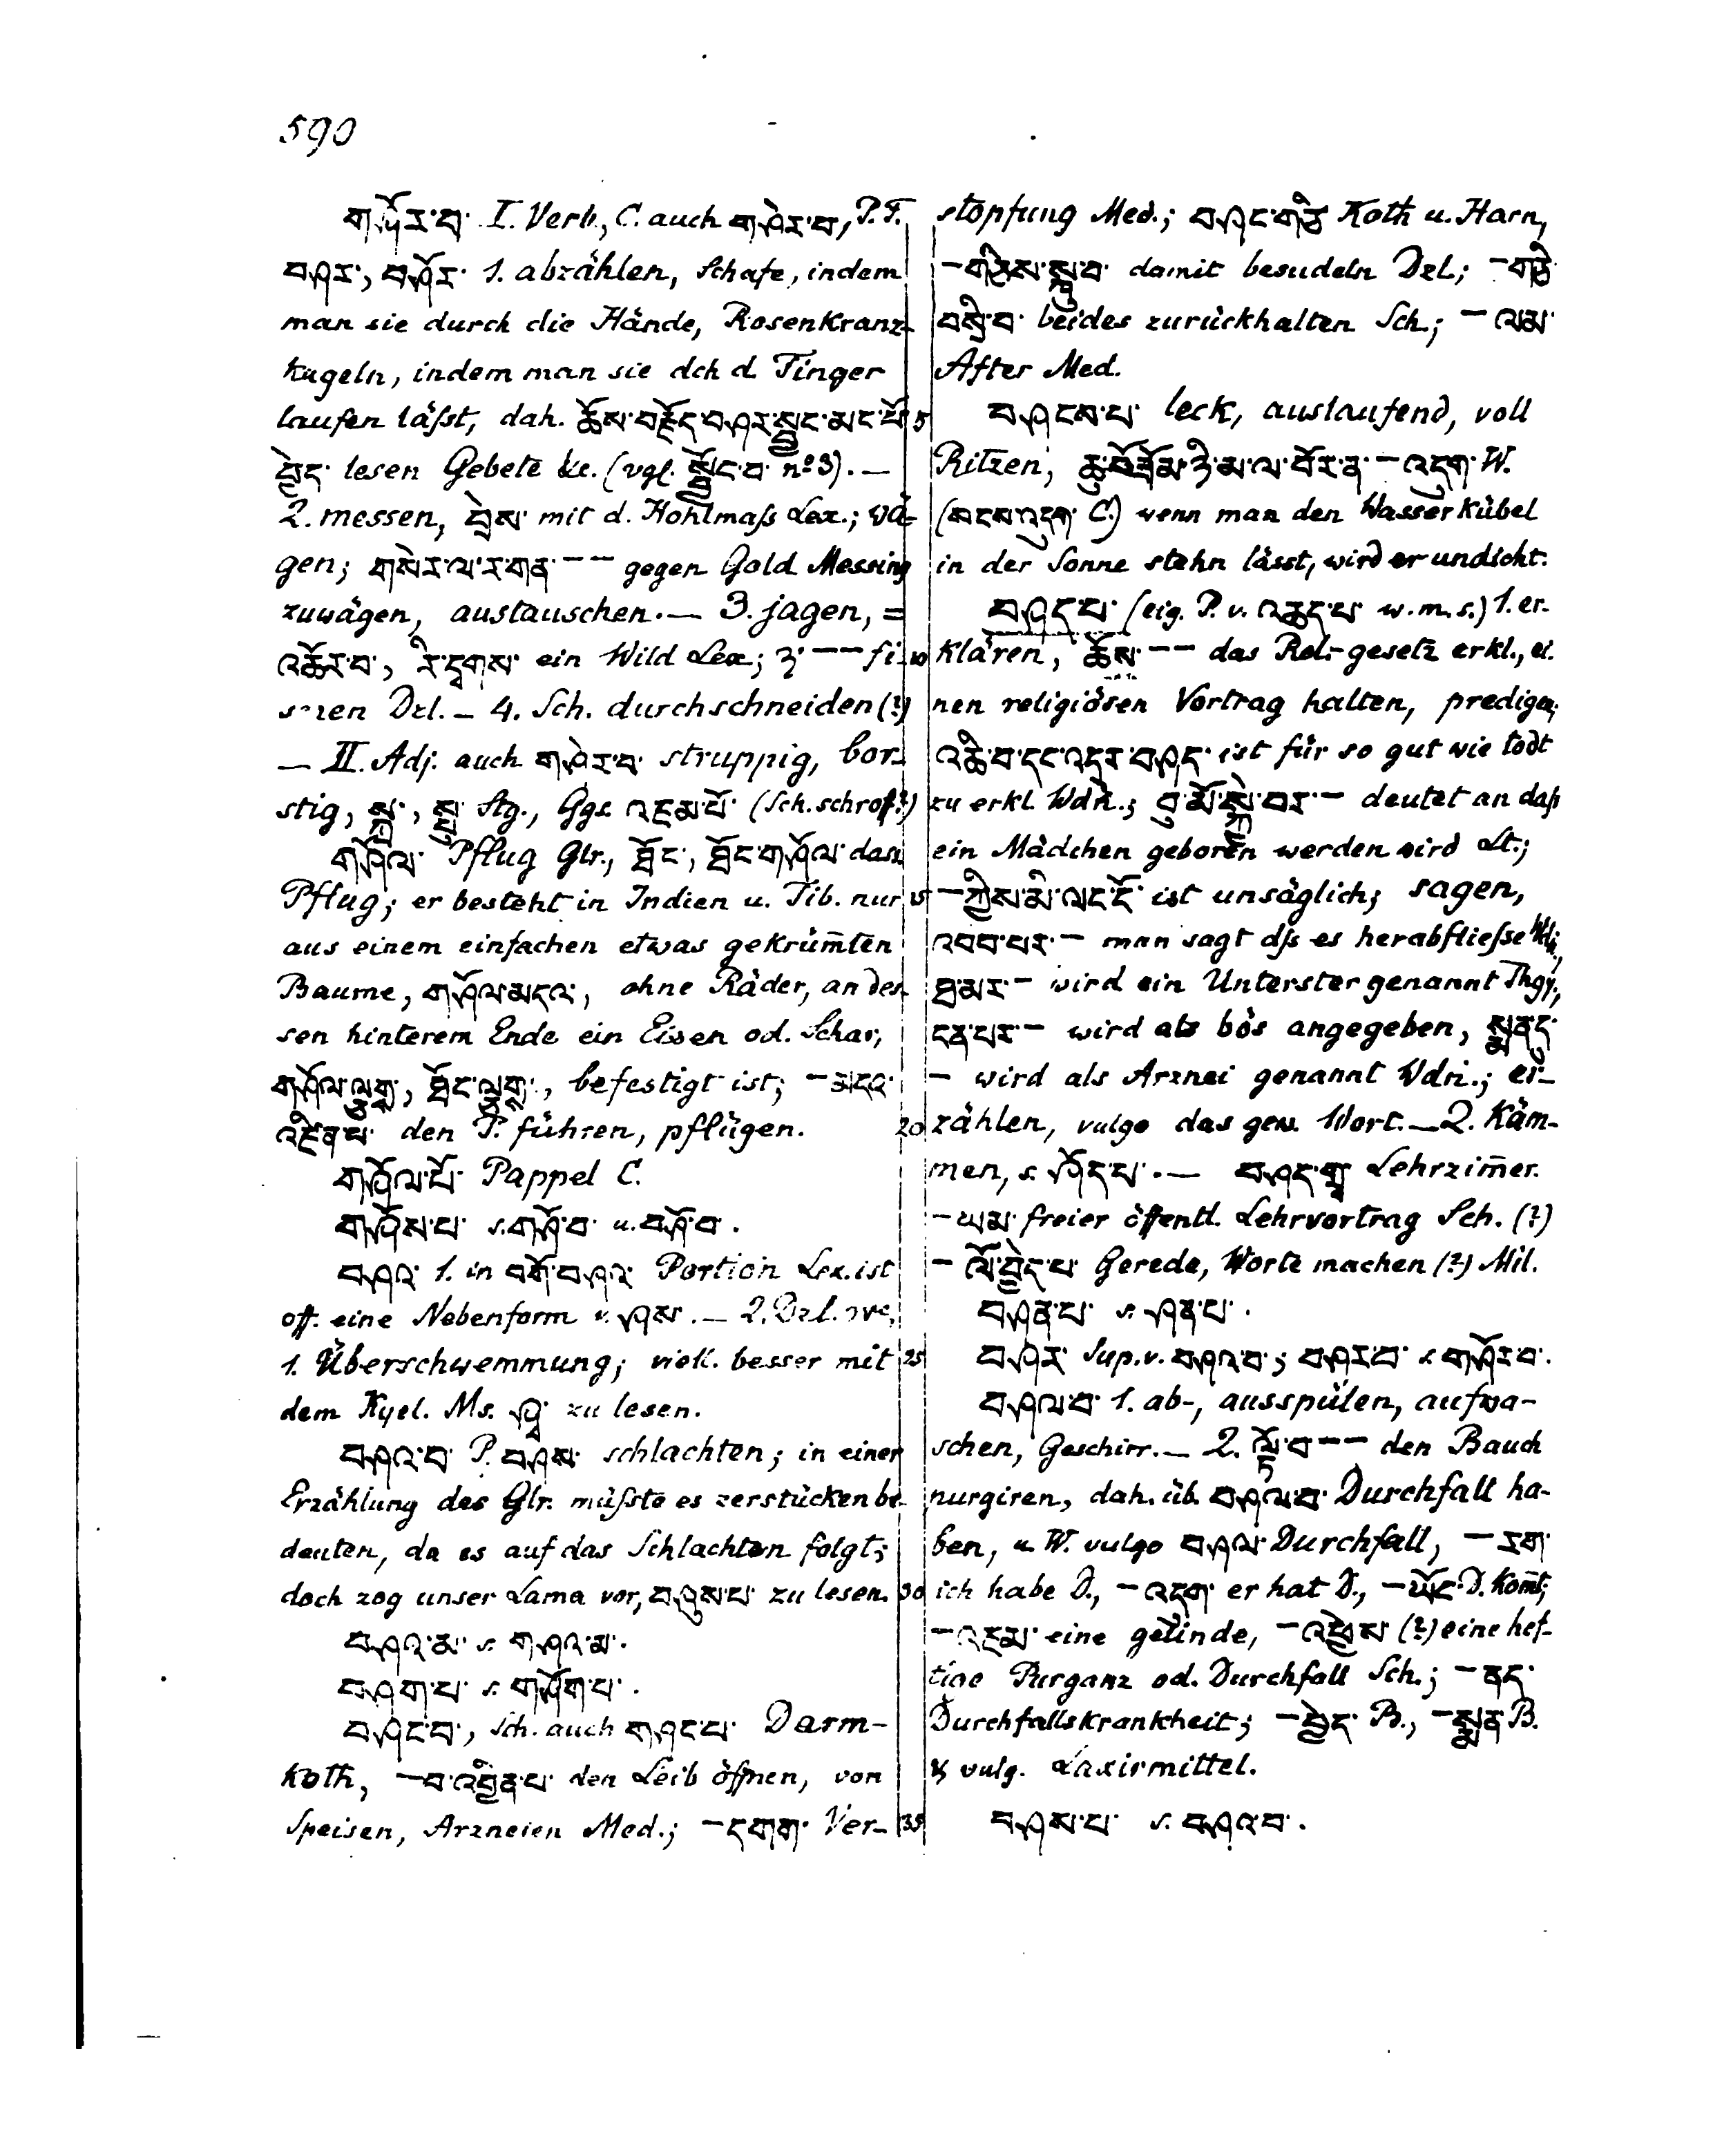 590
གཤོར་བ་ I. Verb, C. auch གཤེར་བ, P. F.
བཤར་, བཤོར་ 1. abzählen, Schafe, indem
man sie durch die Hände, Rosenkranz-
kugeln, indem man sie dch d. Finger
laufen läßt, dah. ཆོས་བརྗོད་བཤར་སྦྱང་མང་པོ་ 5
བྱེད་ lesen Gebete &c. (vgl. སྦྱོང་བ་ nº 3). —
2. messen, བྲེས་ mit d. Hohlmaß Lex.; wä-
gen; གསེར་ལ་ར་གན་ — — gegen Gold Messing
zuwägen, austauschen. — 3. jagen, =
འཆོར་བ་, རི་དྭགས་ ein Wild Lex; ཉ་ — — fi- 10
schen Dzl. — 4. Sch. durchschneiden (?)
— II. Adj. auch གཤེར་བ་ struppig, bor-
stig, སྐྲ་, སྤུ་ Stg., Ggs. འཇམ་པོ་ (Sch. schroff?)
གཤོལ་ Pflug Glr., ཐོང་, ཐོང་གཤོལ་ dass.
Pflug; er besteht in Indien u. Tib. nur 15
aus einem einfachen etwas gekrüm̄ten
Baume, གཤོལ་མདའ་, ohne Räder, an des-
sen hinterem Ende ein Eisen od. Schar,
གཤོལ་ལྕགས་, ཐོང་ལྕགས་, befestigt ist; — མདའ་
འཛིན་པ་ den P. führen, pflügen. 20
གཤོལ་པོ་ Pappel C.
གཤོས་པ་ s. གཤོ་བ་ u. བཤོ་བ་.
བཤའ་ 1. in བགོ་བཤའ་ Portion Lex. ist
off. eine Nebenform v. ཤས་. — 2. Dzl.
1. Überschwemmung; viell. besser mit 25
dem Kyel. Ms. ཤྭ་ zu lesen.
བཤའ་བ་ P. བཤས་ schlachten; in einer
Erzählung des Glr. müßte es zerstücken be-
deuten, da es auf das Schlachten folgt;
doch zog unser Lama vor, བཤུས་པ་ zu lesen. 30
བཤའ་མ་ s. གཤའ་མ་.
བཤག་པ་ s. གཤོག་པ་.
བཤང་བ་, Sch. auch གཤང་པ་ Darm-
koth, — བ་འབྱིན་པ་ den Leib öffnen, von
Speisen, Arzneien Med.; — དགག་ Ver- 35
stopfung Med.; བཤང་གཅི་ Koth u. Harn,
— གཅིས་སྦགས་བ་ damit besudeln Dzl; — གཅི་
བསྲི་བ་ beides zurückhalten Sch.; — ལམ་
After Med.
བཤངས་པ་ leck, auslaufend, voll
Ritzen, ཆུ་བོ་ཟོམ་ཉི་མ་ལ་བོར་ན་ — འདུག་ W.
(སངས་འདུག་ C.) wenn man den Wasserkübel
in der Sonne stehn lässt, wird er undicht.
བཤད་པ་ (eig. P. v. འཆད་པ་ w. m. s.) 1. er-
klären, ཆོས་ — — das Rel.-gesetz erkl., ei-
nen religiösen Vortrag halten, predigen;
འཆི་བ་དང་འདྲར་བཤད་ ist für so gut wie todt
zu erkl. Wdn.; བུ་མོ་སྐྱེ་བར་ — deutet an daß
ein Mädchen geboren werden wird Lt.;
— ཀྱིས་མི་ལང་ངོ་ ist unsäglich; sagen,
འབབ་པར་ — man sagt dß es herabfließe Wdn.;
ཐ་མར་ — wird ein Unterster genannt Thgy.,
ངན་པར་ — wird als bös angegeben, སྨན་དུ་
— wird als Arznei genannt Wdn.; er-
zählen, vulgo das gew. Wort. — 2. Käm-
men, s. ཤོད་པ་. — བཤད་གྲྭ་ Lehrzim̄er.
— ཡམ་ freier öffentl. Lehrvortrag Sch. (?)
— ལོ་བྱེད་པ་ Gerede, Worte machen (?) Mil.
བཤན་པ་ s. ཤན་པ་.
བཤར་ Sup. v. བཤའ་བ་; བཤར་བ་ s. གཤོར་བ་.
བཤལ་བ་ 1. ab-, ausspülen, aufwa-
schen, Geschirr. — 2. ལྟོ་བ་ — — den Bauch
purgiren, dah. üb. བཤལ་བ་ Durchfall ha-
ben, u. W. vulgo བཤལ་ Durchfall, — རག་
ich habe D., — འདུག་ er hat D., — ཡོང་ D. kom̄t;
— འཇམ་ eine gelinde, — འཕྱེས་ (?) eine hef-
tige Purganz od. Durchfall Sch.; — ནད་
Durchfallskrankheit; — བྱེད་ B., — སྨན་ B.
& vulg. Laxirmittel.
བཤས་པ་ s. བཤའ་བ་.